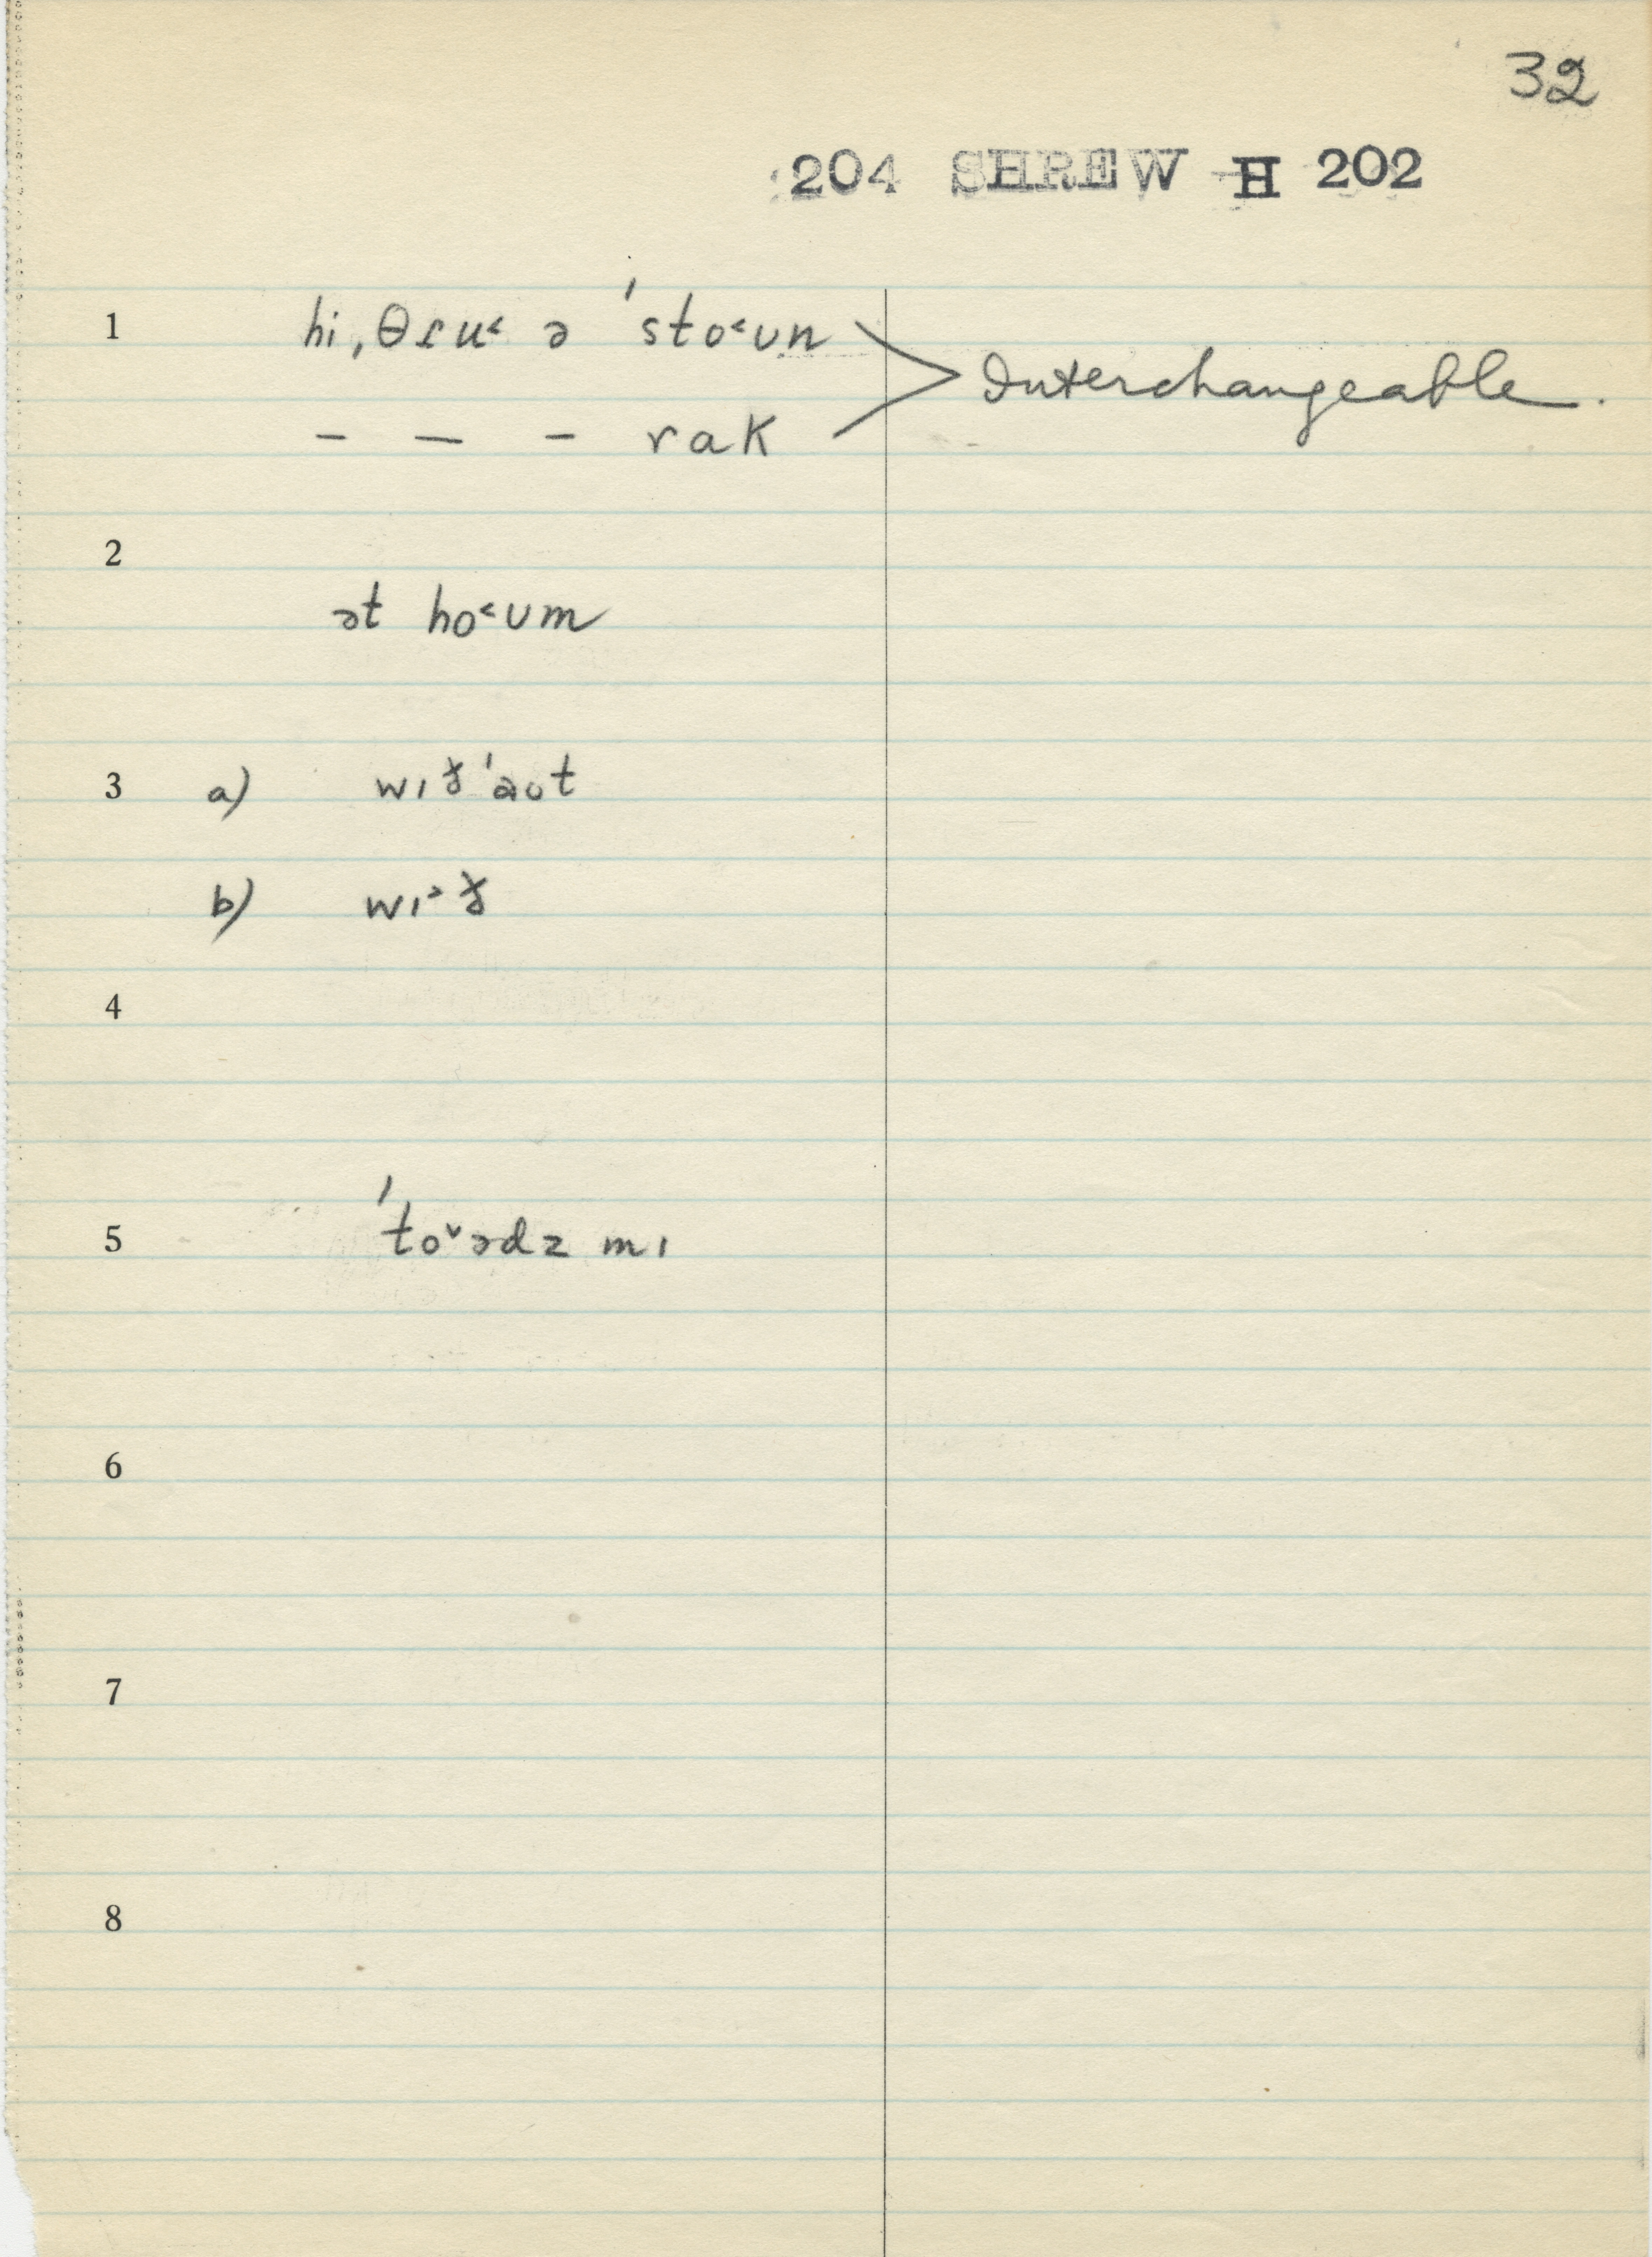 32
204 SHREW H 202
1 hi ˌθɾu˂ ə ˈsto˂ʊn
Interchangeable.
– – – rak
2
ət ho˂ʊm
3 a) wɪðˈaʊt
b) wɪ˃ð
4
5 ˈto˅ədz mɪ
6
7
8